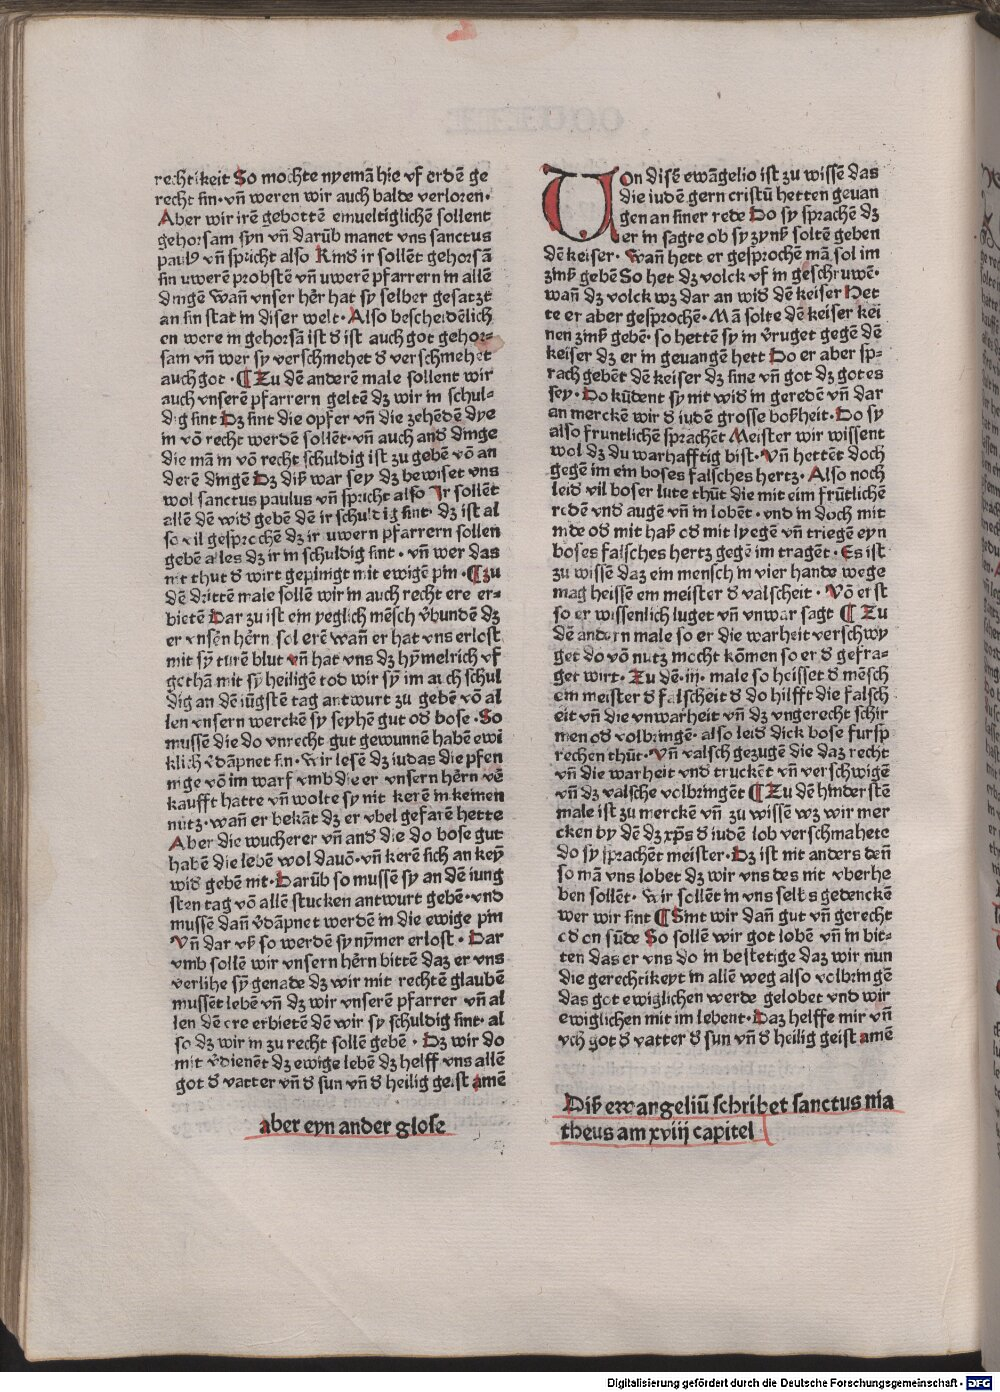 rechtikeit So mochte nyemā hie vf erdē ge
recht sin · vn̄ weren wir auch balde verloren ·
Aber wir irē gebottē emueltiglichē sollent
gehorsam syn vn̄ darūb manet vns sanctus
paulꝰ vn̄ spricht also Kind ir sollēt gehorsā
sin uwerē probstē vn̄ uwerē pfarrern in allē
dingē Wan̄ vnser her̄ hat sy selber gesatzt
an sin stat in diser welt · Also bescheidēlich
en were in gehorsā ist d̓ ist auch got gehor⸗
sam vn̄ wer sy verschmehet d̓ verschmehet
auch got · ¶ Zu dē anderē male sollent wir
auch vnserē pfarrern geltē dz wir in schul⸗
dig sint Dz sint die opfer vn̄ die zehēdē dye
in vō recht werdē sollēt · vn̄ auch and̓ dinge
die mā in vō recht schuldig ist zu gebē vō an
derē dingē Dz diß war sey dz bewiset vns
wol sanctus paulus vn̄ spricht also Ir sollēt
allē dē wid̓ gebē dē ir schuldig sint · dz ist al
so vil gesprochē dz ir uwern pfarrern sollen
gebē alles dz ir in schuldig sint · vn̄ wer das
nit thut d̓ wirt gepinigt mit ewigē pin · ¶ zu
dē drittē male sollē wir in auch recht ere er⸗
bietē Dar zu ist ein yeglich mēsch v̓bundē dz
er vnsēn hērn sol erē wan̄ er hat vns erlost
mit sȳ turē blut vn̄ hat vns dz hȳmelrich vf
gethā mit sȳ heiligē tod wir sȳ im auch schul
dig an dē iūgstē tag antwurt zu gebē vō al
len vnsern werckē sy seyhē gut od̓ bose · So
mussē die do vnrecht gut gewunnē habē ewi
klich v̓dāpnet sin · Wir lesē dz iudas die pfen
nige vō im warf vmb die er vnsern hērn v̓
kaufft hatte vn̄ wolte sy nit kerē in keinen
nutz · wan̄ er bekāt dz er vbel gefarē hette
Aber die wucherer vn̄ and̓ die do bose gut
habē die lebē wol dauō · vn̄ kerē sich an keȳ
wid̓ gebē nit · Darūb so mussē sy an dē iung
sten tag vō allē stucken antwurt gebē · vnd
mussē dan̄ v̓dāpnet werdē in die ewige pin
Vn̄ dar vß so werdē sy nȳmer erlost · Dar
vmb sollē wir vnsern hērn bittē daz er vns
verlihe sȳ genade dz wir mit rechtē glaubē
mussēt lebē vn̄ dz wir vnserē pfarrer vn̄ al
len dē ere erbietē dē wir sy schuldig sint · al
so dz wir in zu recht sollē gebē · Dz wir do
mit v̓dienēt dz ewige lebē dz helff vns allē
got d̓ vatter vn̄ d̓ sun vn̄ d̓ heilig geist amē
aber eyn ander glose
Uon disē ewāgelio ist zu wissē das
die iudē gern cristū hetten geuan
gen an siner rede Do sy sprachē dz
er in sagte ob sy zynß soltē geben
dē keiser · Wan̄ hett er gesprochē mā sol im
zinß gebē So het dz volck vf in geschruwē ·
wan̄ dz volck wz dar an wid̓ dē keiser Het
te er aber gesprochē · Mā solte dē keiser kei
nen zinß gebē · so hettē sy in v̓ruget gegē dē
keiser dz er in geuangē hett Do er aber sp⸗
rach gebēt dē keiser dz sine vn̄ got dz gotes
sey · Do kūdent sy nit wid̓ in geredē vn̄ dar
an merckē wir d̓ iudē grosse boßheit · Do sy
also fruntlichē sprachēt Meister wir wissent
wol dz du warhafftig bist · Vn̄ hettēt doch
gegē im ein boses falsches hertz · Also noch
leid̓ vil boser lute thūt die mit eim frūtlichē
redē vnd̓ augē vn̄ in lobēt · vnd in doch mit
nide od̓ mit haß od̓ mit lyegē vn̄ triegē eyn
boses falsches hertz gegē im tragēt · Es ist
zu wissē daz ein mensch in vier hande wege
mag heissē ein meister d̓ valscheit · Vō erst
so er wissenlich luget vn̄ vnwar sagt ¶ Zu
dē andern male so er die warheit verschwy
get do vō nutz mocht kōmen so er d̓ gefra⸗
get wirt · Zu dē · iii · male so heisset d̓ mēsch
ein meister d̓ falscheit d̓ do hilfft die falsch
eit vn̄ die vnwarheit vn̄ dz vngerecht schir
men od̓ volbringē · also leid̓ dick bose fursp
rechen thūt · Vn̄ valsch gezugē die daz recht
vn̄ die warheit vnd̓ truckēt vn̄ verschwigē
vn̄ dz valsche volbringēt ¶ Zu dē hinderstē
male ist zu merckē vn̄ zu wissē wz wir mer
cken by dē dz xp̄s d̓ iudē lob verschmahete
do sy sprachēt meister · Dz ist nit anders den̄
so mā vns lobet dz wir vns des nit vberhe
ben sollēt · Wir sollēt in vns selbs gedenckē
wer wir sint ¶ Sint wir dan̄ gut vn̄ gerecht
od̓ on sūde So sollē wir got lobē vn̄ in bit⸗
ten das er vns do in bestetige daz wir nun
die gerechtikeyt in allē weg also volbringē
das got ewiglichen werde gelobet vnd wir
ewiglichen mit im lebent · Daz helffe mir vn̄
vch got d̓ vatter d̓ sun vn̄ d̓ heilig geist amē
Diß ewangeliū schribet sanctus ma
theus am xviij capitel
Digitalisierung gefördert durch die Deutsche Forschungsgemeinschaft - DFG